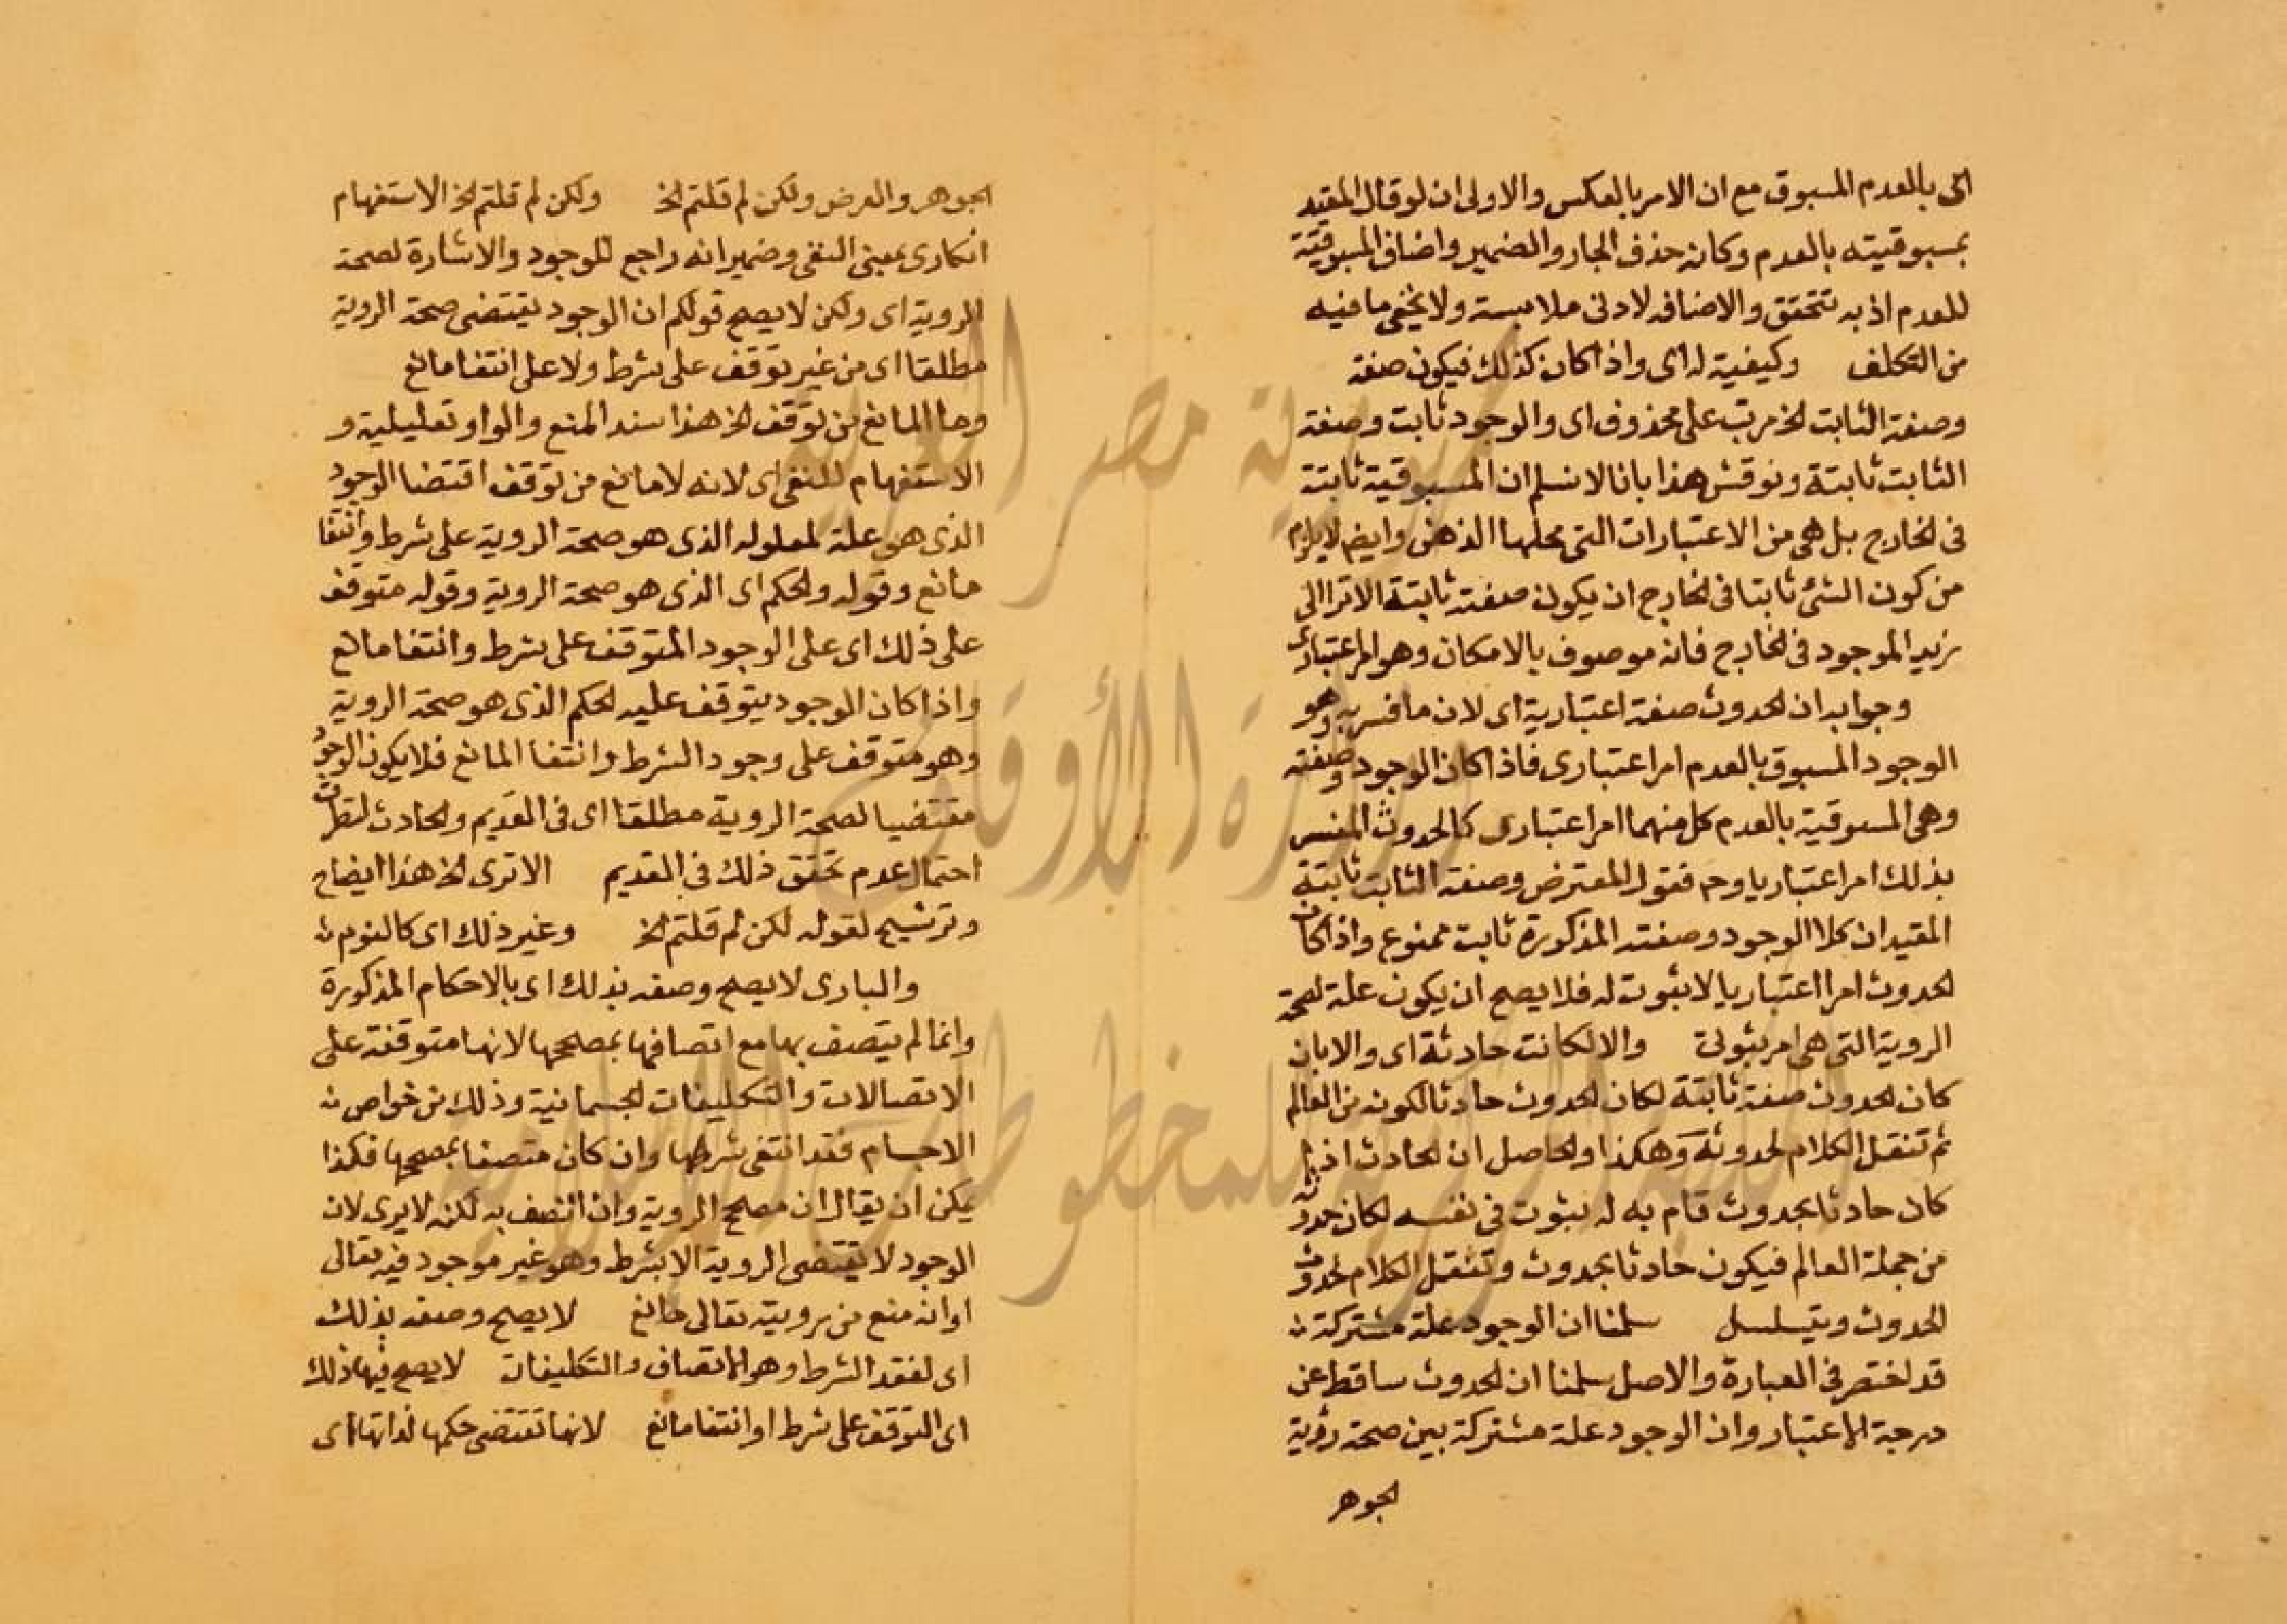 اتى بالعدم المسبوق مع ان الامر بالعكس والاولى ان لو قال المقيد
بمسبوقيته بالعدم وكانه حذف الجار والضمير واضاف المسبوقية
للعدم اذ به تتحقق والاضافه لادنى ملابسة ولا يخفى ما فيه
من التكلف وكيفية له اى واذا كان كذلك فيكون صفة
وصفة الثابت الخ مرتب على محذوف اى والوجود ثابت وصفة
الثابت ثابتة ونوقش هذا بانا لا نسلم ان المسبوقية ثابتة
فى الخارج بل هى من الاعتبارات التى محلها الذهن وايضا لا يلزم
من كون الشئ ثابتا فى الخارج ان يكون صفته ثابتة الا ترا الى
زيد الموجود فى الخارج فانه موصوف بالامكان وهو امر اعتبارى
وجوابه ان الحدوث صفة اعتبارية اى لان ما فسر به وهو
الوجود المسبوق بالعدم امر اعتبارى فاذا كان الوجود وصفته
وهى المسبوقية بالعدم كل منهما امر اعتبارى كالحدوث المفسر
بذلك امر اعتباريا وح فقول المعترض وصفة الثابت ثابتة
المقيد ان كلا الوجود وصفته المذكورة ثابت ممنوع واذا كان
الحدوث امرا اعتباريا لا ثبوت له فلا يصح ان يكون علة لصحة
الروية التى هى امر ثبوتى والا لكانت حادثة اى والا بان
كان الحدوث صفة ثابتة لكان الحدوث حادثا لكونه من العالم
ثم تنقل الكلام لحدوثه وهكذا والحاصل ان الحادث اذا
كان حادثا بحدوث قام به له ثبوت فى نفسه لكان حدوثه
من جملة العالم فيكون حادثا بحدوث وتنقل الكلام لحدوث
الحدوث ويتسلسل سلمنا ان الوجود علة مشتركة
قد اختصر فى العبارة والاصل سلمنا ان الحدوث ساقط عن
درجة الاعتبار وان الوجود علة مشتركة بين صحة رؤية
الجوهر
الجوهر والعرض ولكن لم قلتم الخ ولكن لم قلتم الخ الاستفهام
انكارى بمعنى النفى وضمير انه راجع للوجود والاشارة لصحة
الروية اى ولكن لا يصح قولكم ان الوجود يقتضى صحة الروية
مطلقا اى من غير توقف على شرط ولا على انتفا مانع
وما المانع من توقف الخ هذا سند المنع والواو تعليلية و
الاستفهام للنفى اى لانه لا مانع من توقف اقتضا الوجود
الذى هو علة لمعلوله الذى هو صحة الروية على شرط وانتفا
مانع وقوله والحكم اى الذى هو صحة الروية وقوله متوقف
على ذلك اى على الوجود المتوقف على شرط وانتفا مانع
واذا كان الوجود يتوقف عليه الحكم الذى هو صحة الروية
وهو متوقف على وجود الشرط وانتفا المانع فلا يكون الوجود
مقتضيا لصحة الروية مطلقا اى فى القديم والحادث لتطرق
احتمال عدم تحقق ذلك فى القديم الا ترى الخ هذا ايضاح
وترشيح لقوله لكن لم قلتم الخ وغير ذلك اى كالنوم
والبارى لا يصح وصفه بذلك اى بالاحكام المذكورة
وانما لم يتصف بها مع اتصافها بمصححها لانها متوقفة على
الاتصالات والتكليفات الجسمانية وذلك من خواص
الاجسام فقد انتفى شرطها وان كان متصفا بمصححها فكذا
يمكن ان يقال ان مصحح الروية وان اتصف به لكن لا يرى لان
الوجود لا يقتضى الروية الا بشرط وهو غير موجود فيه تعالى
او انه منع من رويته تعالى مانع لا يصح وصفه بذلك
اى لفقد الشرط وهو الاتصاف والتكليفات لا يصح فيها ذلك
اى التوقف على شرط او انتفا مانع لانها تقتضى حكمها لذاتها اى
جمهورية مصر العربية
وزارة الأوقاف
المكتبة المركزية للمخطوطات الإسلامية